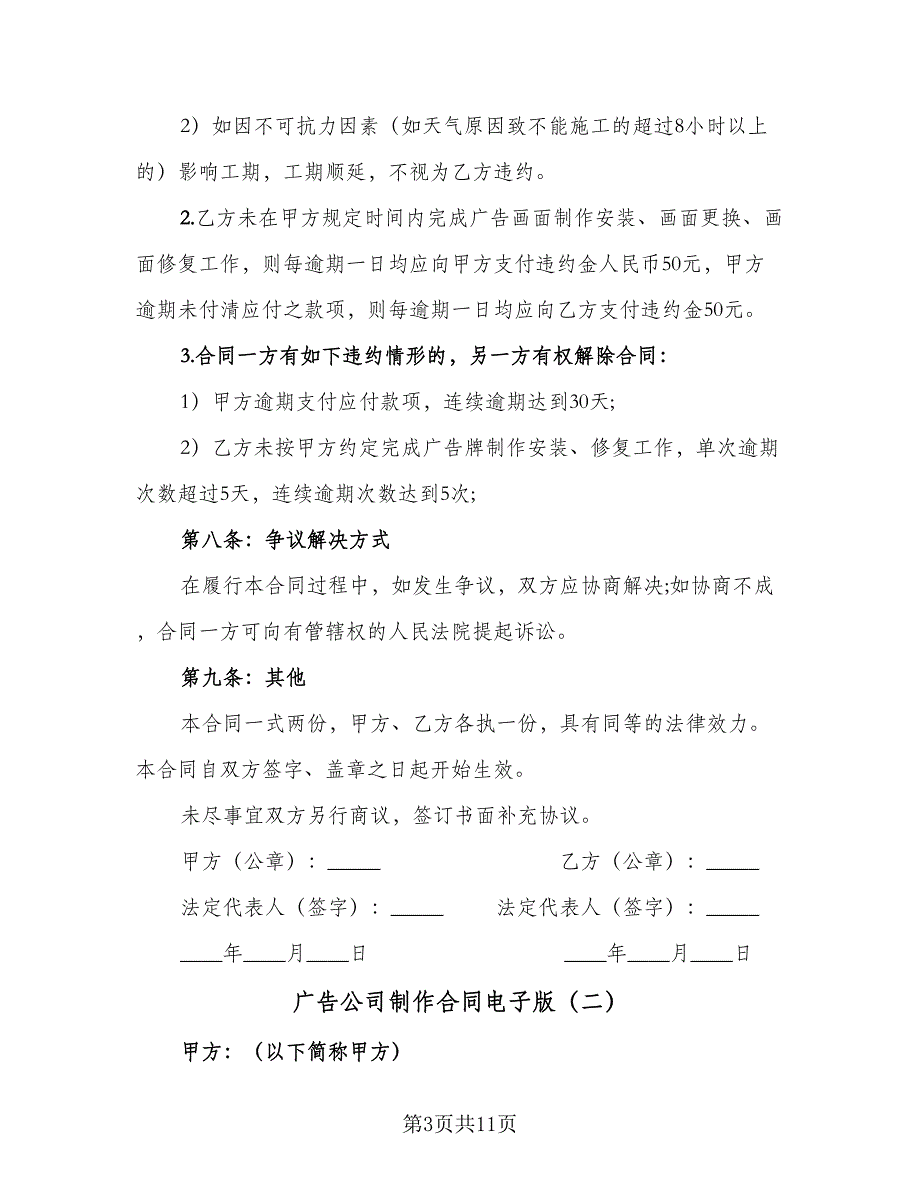 2）如因不可抗力因素（如天气原因致不能施工的超过8小时以上
的）影响工期，工期顺延，不视为乙方违约。
2.乙方未在甲方规定时间内完成广告画面制作安装、画面更换、画
面修复工作，则每逾期一日均应向甲方支付违约金人民币50元，甲方
逾期未付清应付之款项，则每逾期一日均应向乙方支付违约金50元。
3.合同一方有如下违约情形的，另一方有权解除合同：
1）甲方逾期支付应付款项，连续逾期达到30天;
2）乙方未按甲方约定完成广告牌制作安装、修复工作，单次逾期
次数超过5天，连续逾期次数达到5次;
第八条：争议解决方式
在履行本合同过程中，如发生争议，双方应协商解决;如协商不成
，合同一方可向有管辖权的人民法院提起诉讼。
第九条：其他
本合同一式两份，甲方、乙方各执一份，具有同等的法律效力。
本合同自双方签字、盖章之日起开始生效。
未尽事宜双方另行商议，签订书面补充协议。
甲方（公章）：_____ 乙方（公章）：_____
法定代表人（签字）：_____ 法定代表人（签字）：_____
____年____月____日 ____年____月____日
广告公司制作合同电子版（二）
甲方：（以下简称甲方）
第3页共11页